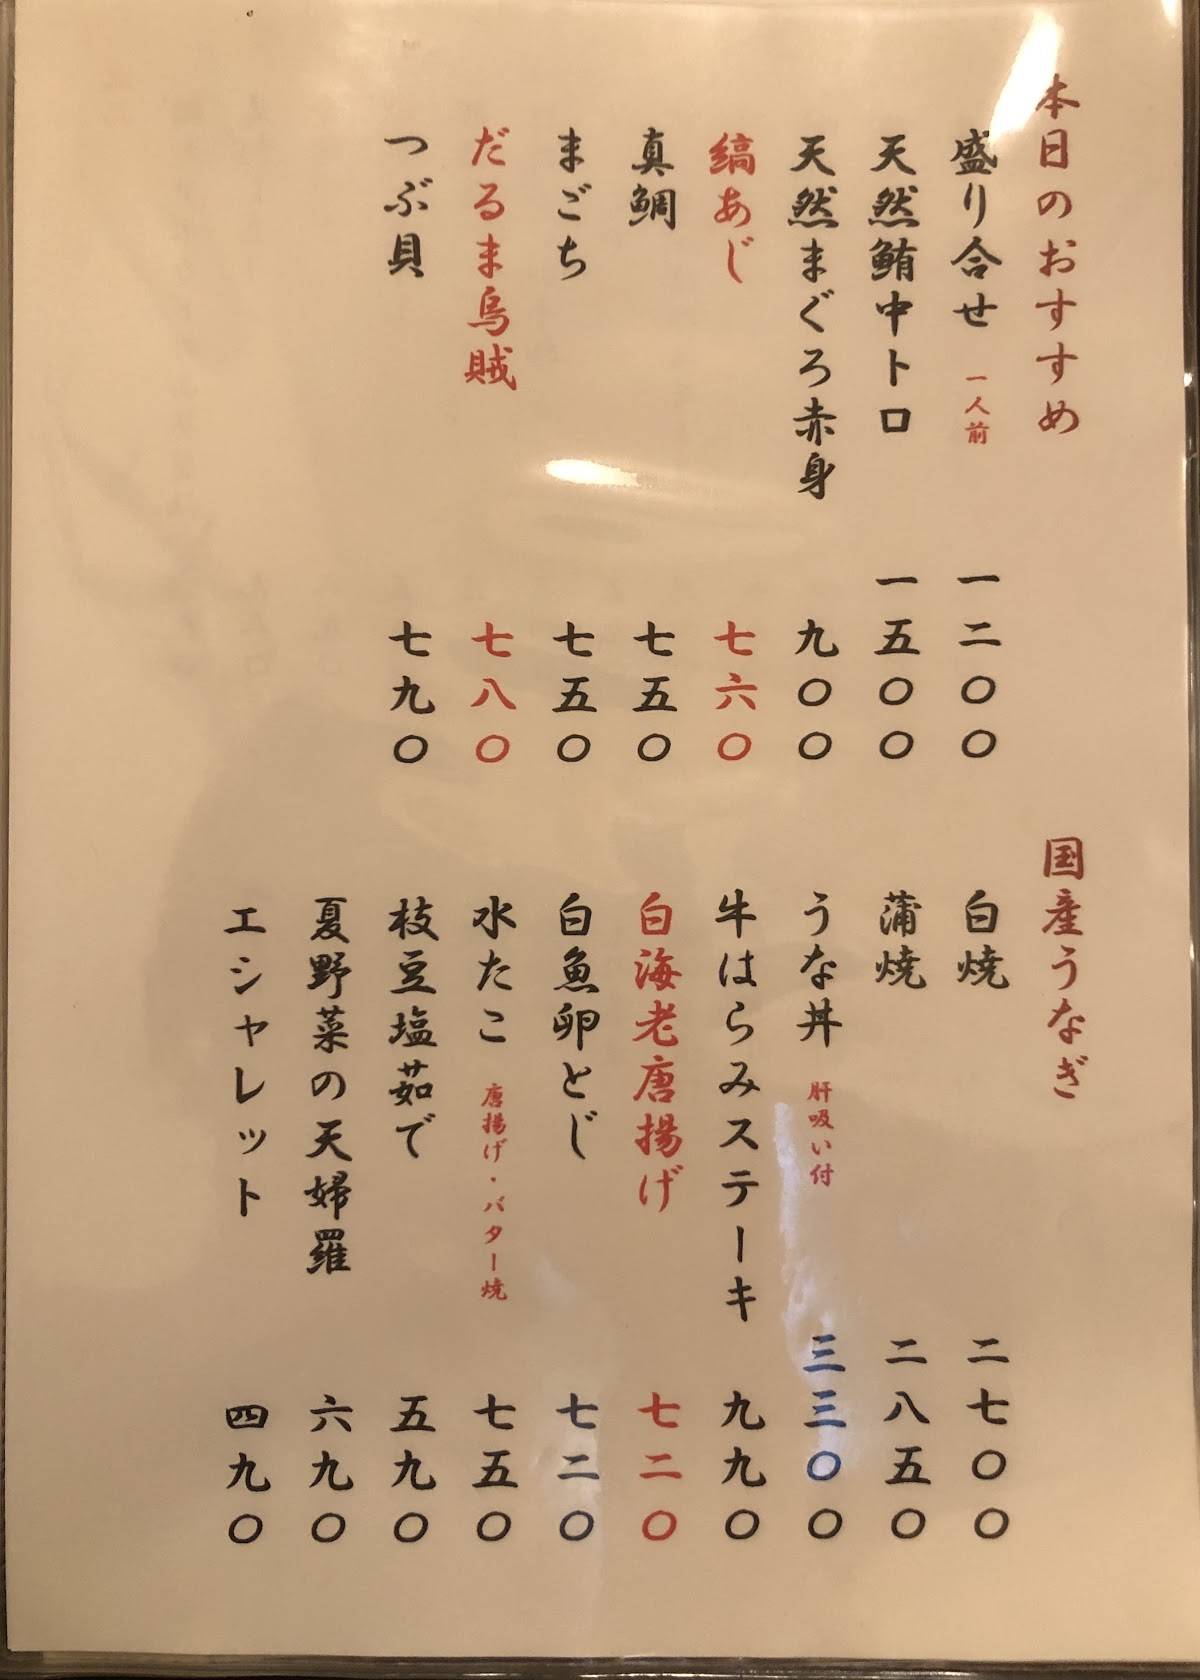 本日のおすすめ
盛り合せ 一人前 一二〇〇
天然鮪中トロ 一五〇〇
天然まぐろ赤身 九〇〇
縞あじ 七六〇
真鯛 七五〇
まごち 七五〇
だるま烏賊 七八〇
つぶ貝 七九〇
国産うなぎ
白焼 二七〇〇
蒲焼 二八五〇
うな丼 肝吸い付 三三〇〇
牛はらみステーキ 九九〇
白海老唐揚げ 七二〇
白魚卵とじ 七二〇
水たこ 唐揚げ・バター焼 七五〇
枝豆塩茹で 五九〇
夏野菜の天婦羅 六九〇
エシャレット 四九〇